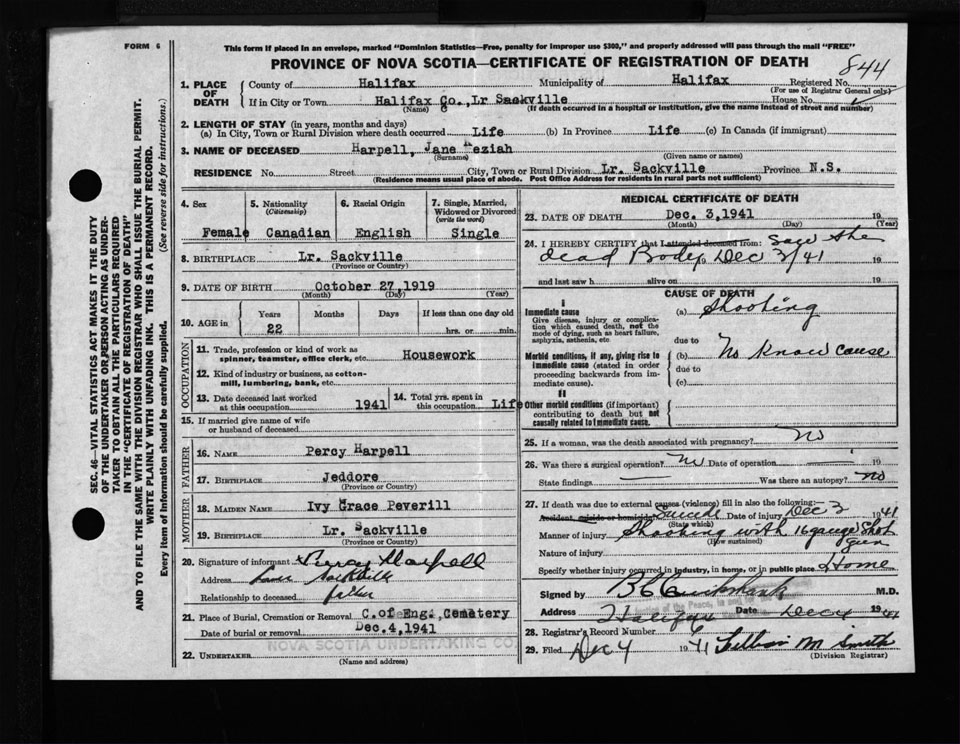 FORM 6
This form if placed in an envelope, marked "Dominion Statistics—Free, penalty for improper use $300," and properly addressed will pass through the mail "FREE"
PROVINCE OF NOVA SCOTIA—CERTIFICATE OF REGISTRATION OF DEATH
844
1. PLACE OF DEATH
County of Halifax Municipality of Halifax Registered No.
(For use of Registrar General only)
If in City or Town Halifax Co., Lr Sackville House No.
(Name) (If death occurred in a hospital or institution, give the name instead of street and number)
2. LENGTH OF STAY (in years, months and days)
(a) In City, Town or Rural Division where death occurred Life (b) In Province Life (c) In Canada (if immigrant)
3. NAME OF DECEASED Harpell, Jane Keziah
(Surname) (Given name or names)
RESIDENCE No. Street City, Town or Rural Division Lr. Sackville Province N.S.
(Residence means usual place of abode. Post Office Address for residents in rural parts not sufficient)
SEC. 46—VITAL STATISTICS ACT MAKES IT THE DUTY
OF THE UNDERTAKER OR PERSON ACTING AS UNDER-
TAKER TO OBTAIN ALL THE PARTICULARS REQUIRED
IN THE "CERTIFICATE OF REGISTRATION OF DEATH"
AND TO FILE THE SAME WITH THE DIVISION REGISTRAR WHO SHALL ISSUE THE BURIAL PERMIT.
WRITE PLAINLY WITH UNFADING INK. THIS IS A PERMANENT RECORD.
Every item of Information should be carefully supplied. (See reverse side for instructions.)
4. Sex
Female
5. Nationality
(Citizenship)
Canadian
6. Racial Origin
English
7. Single, Married,
Widowed or Divorced
(write the word)
Single
8. BIRTHPLACE Lr. Sackville
(Province or Country)
9. DATE OF BIRTH October 27, 1919
(Month) (Day) (Year)
10. AGE in
Years Months Days If less than one day old
22 hrs. or min.
OCCUPATION
11. Trade, profession or kind of work as
spinner, teamster, office clerk, etc. Housework
12. Kind of industry or business, as cotton-
mill, lumbering, bank, etc.
13. Date deceased last worked
at this occupation 1941
14. Total yrs. spent in
this occupation Life
15. If married give name of wife
or husband of deceased
FATHER
16. NAME Percy Harpell
17. BIRTHPLACE Jeddore
(Province or Country)
MOTHER
18. MAIDEN NAME Ivy Grace Peverill
19. BIRTHPLACE Lr. Sackville
(Province or Country)
20. Signature of informant x Percy Harpell
Address Lower Sackville
Relationship to deceased father
21. Place of Burial, Cremation or Removal C. of Eng. Cemetery
Date of burial or removal Dec. 4, 1941
22. UNDERTAKER NOVA SCOTIA UNDERTAKING CO.
(Name and address)
MEDICAL CERTIFICATE OF DEATH
23. DATE OF DEATH Dec. 3, 1941 19
(Month) (Day) (Year)
24. I HEREBY CERTIFY that I attended deceased from: Saw the
dead Body 19 Dec 3/41 19
and last saw h alive on 19
CAUSE OF DEATH
I
Immediate cause
Give disease, injury or complica-
tion which caused death, not the
mode of dying, such as heart failure,
asphyxia, asthenia, etc.
(a) Shooting
due to
Morbid conditions, if any, giving rise to
immediate cause (stated in order
proceeding backwards from im-
mediate cause).
(b) No Know cause
due to
(c)
II
Other morbid conditions (if important)
contributing to death but not
causally related to immediate cause.
25. If a woman, was the death associated with pregnancy? No
26. Was there a surgical operation? No Date of operation — 19
State findings — Was there an autopsy? No
27. If death was due to external causes (violence) fill in also the following:—
Accident, suicide or homicide Suicide Date of injury Dec 3 1941
(State which)
Manner of injury Shooting with 16 gauge Shot
gun
(How sustained)
Nature of injury
Specify whether injury occurred in industry, in home, or in public place Home
Signed by M.D.
Address Halifax Date Dec 4 1941
28. Registrar's Record Number 6
29. Filed Dec 4 1941 Lillian M Smith
(Division Registrar)